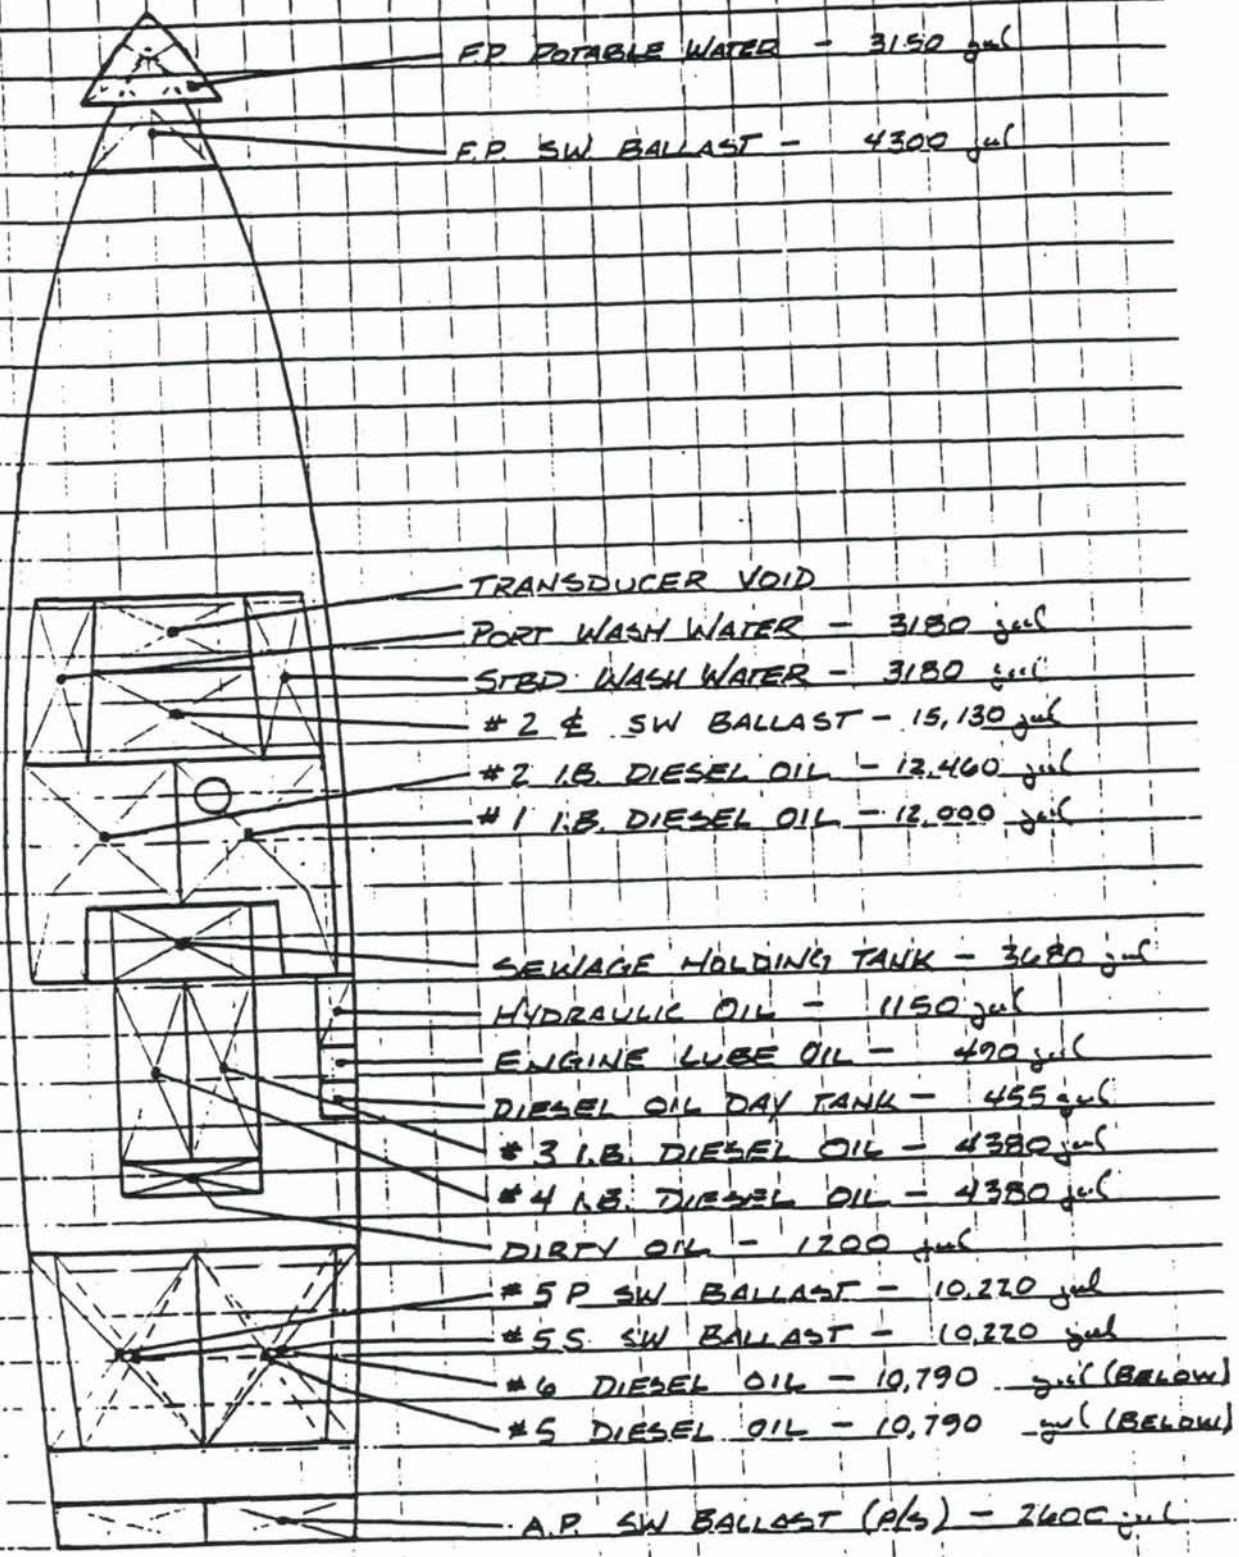 F.P. POTABLE WATER - 3150 gal
F.P. SW BALLAST - 4300 gal
TRANSDUCER VOID
PORT WASH WATER - 3180 gal
STBD WASH WATER - 3180 gal
#2 ℄ SW BALLAST - 15,130 gal
#2 I.B. DIESEL OIL - 12,460 gal
#1 I.B. DIESEL OIL - 12,000 gal
SEWAGE HOLDING TANK - 3680 gal
HYDRAULIC OIL - 1150 gal
ENGINE LUBE OIL - 490 gal
DIESEL OIL DAY TANK - 455 gal
#3 I.B. DIESEL OIL - 4380 gal
#4 I.B. DIESEL OIL - 4380 gal
DIRTY OIL - 1200 gal
#5P SW BALLAST - 10,220 gal
#5S SW BALLAST - 10,220 gal
#6 DIESEL OIL - 10,790 gal (BELOW)
#5 DIESEL OIL - 10,790 gal (BELOW)
A.P. SW BALLAST (P/S) - 2600 gal